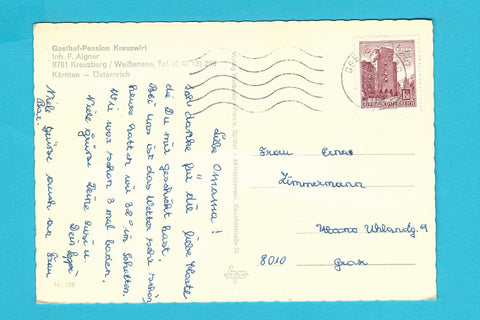 Gasthof-Pension Kreuzwirt
Inh. F. Aigner
9761 Kreuzberg / Weißensee, Tel. (0 47 13) 206
Kärnten – Österreich
Liebe Omama!
Ich danke für die liebe Karte
die Du mir geschickt hast.
Bei uns ist das Wetter sehr schön
heute hatten wir 32° im Schatten.
Wir war schon 3 mal baden.
Viele Grüsse Deine
Dein
Viele Grüsse auch an Frau
Nr. 138
Frau Erna
Zimmermann
Hans Uhlandg. 9
8010 Graz
REPUBLIK ÖSTERREICH